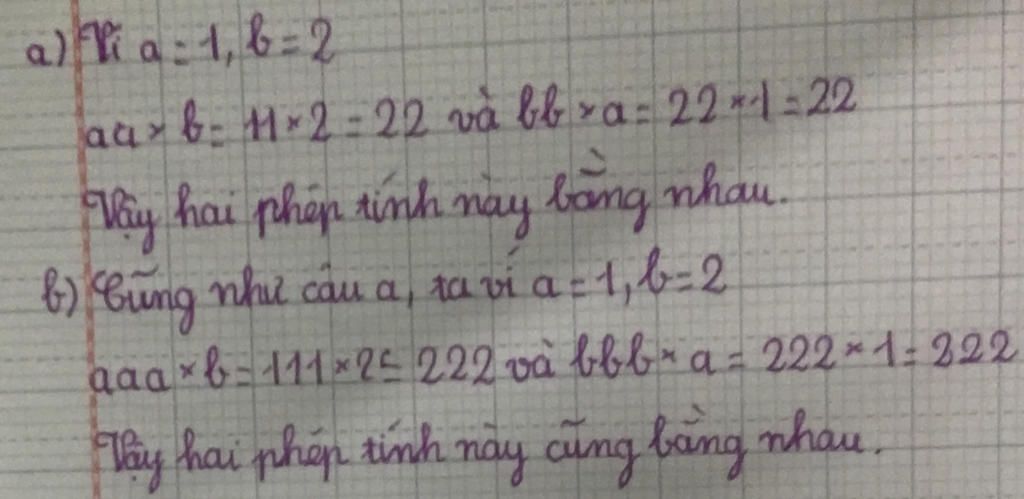 a) Ví a = 1, b = 2
aa × b = 11 × 2 = 22 và bb × a = 22 × 1 = 22
Vậy hai phép tính này bằng nhau.
b) Cũng như câu a, ta ví a = 1, b = 2
aaa × b = 111 × 2 = 222 và bbb × a = 222 × 1 = 222
Vậy hai phép tính này cũng bằng nhau.